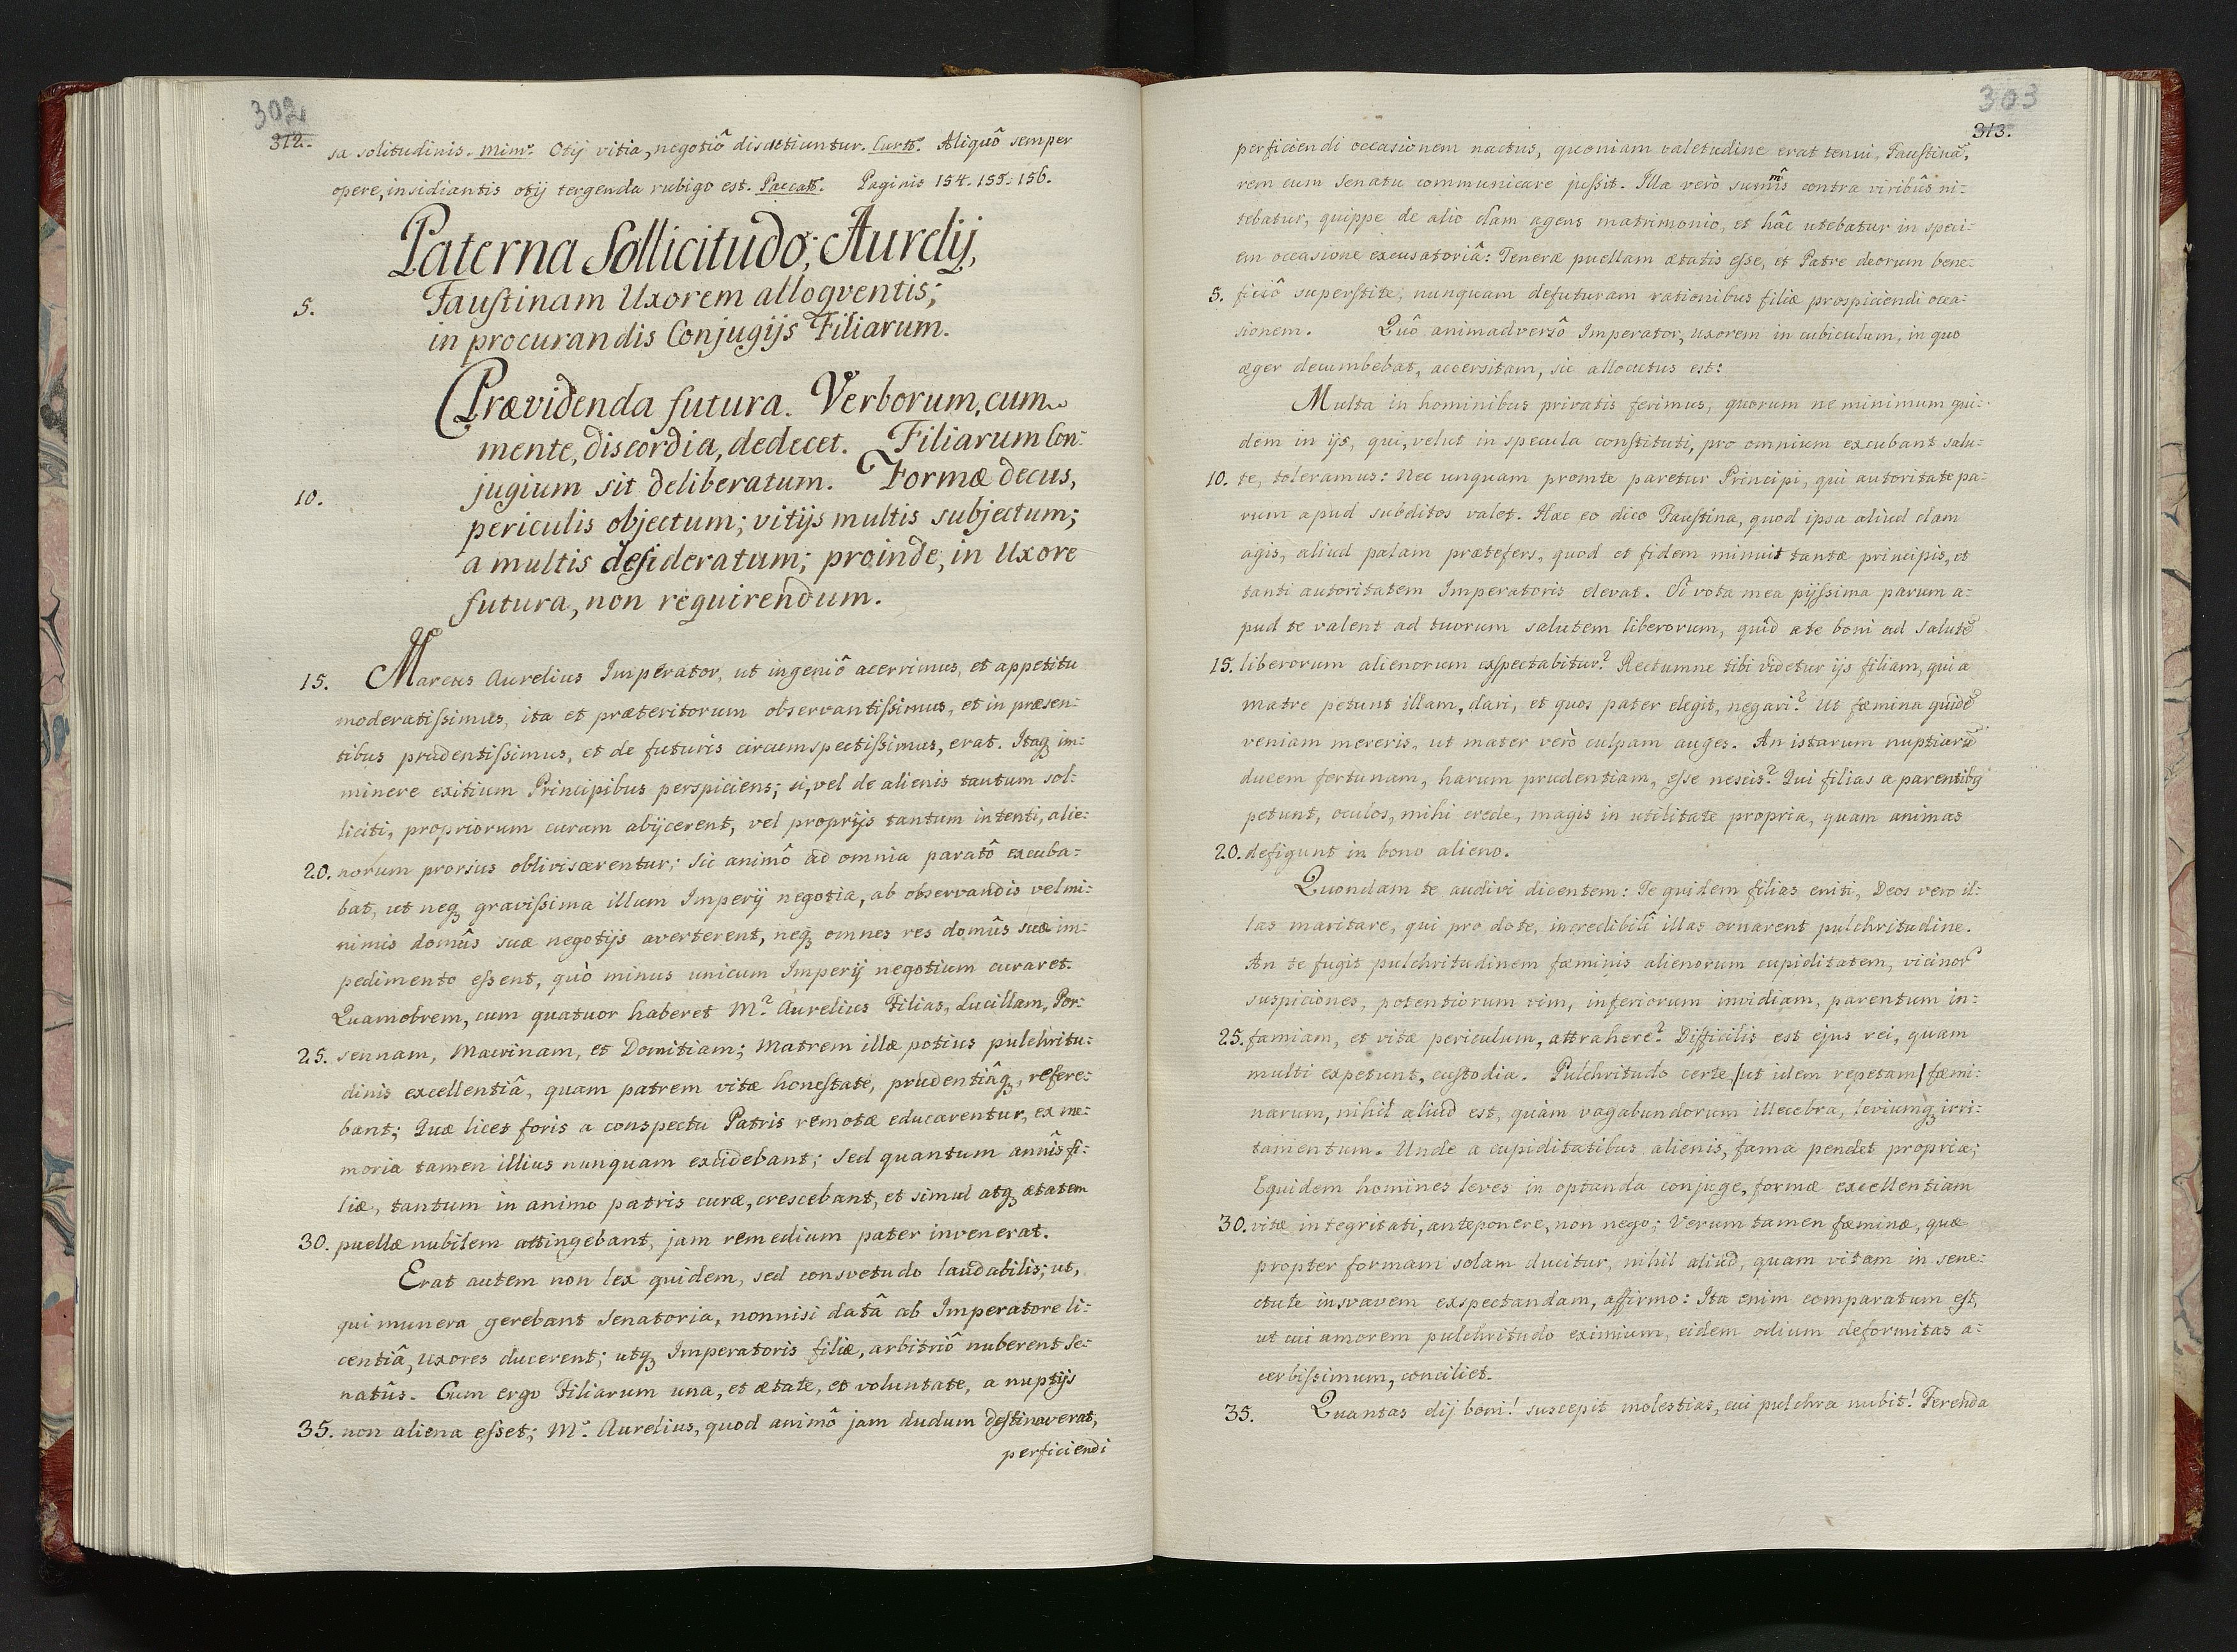 302
312.
sa solitudinis. Mim9. Otij vitia, negotiô discutiuntur. Curt9. Aliquô semper
opere, insidiantis otij tergenda rubigo est. Paccat9. Paginis 154. 155. 156.
Paterna Sollicitudo, Aurelij,
5. Faustinam Uxorem alloqventis;
in procurandis Conjugijs Filiarum.
Prævidenda futura. Verborum, cum
mente, discordia, dedecet. Filiarum Con:
10. jugium sit deliberatum. Formæ decus,
periculis objectum; vitijs multis subjectum;
a multis desideratum; proinde, in Uxore
futura, non requirendum.
15. Marcus Aurelius Imperator, ut ingeniô acerrimus, et appetitu
moderatissimus, ita et præteritorum observantissimus, et in præsen:
tibus prudentissimus, et de futuris circumspectissimus, erat. Itaq; im:
minere exitium Principibus perspiciens; si, vel de alienis tantum sol:
liciti, propriorum curam abijcerent, vel proprijs tantum intenti, alie:
20. norum prorsus obliviscerentur; sic animô ad omnia paratô excuba:
bat, ut neq; gravissima illum Imperij negotia, ab observandis vel mi:
nimis domûs suæ negotijs averterent, neq; omnes res domûs suæ im:
pedimento essent, quò minus unicum Imperij negotium curaret.
Quamobrem, cum quatuor haberet M.9 Aurelius Filias, Lucillam, Por:
25. sennam, Macrinam, et Domitiam; Matrem illæ potius pulchritu:
dinis excellentiâ, quam patrem vitæ honestate, prudentiâq;, refere:
bant; Quæ licet foris a conspectu Patris remotæ educarentur, ex me:
moria tamen illius nunquam excidebant; sed quantum annis fi:
liæ, tantum in animo patris curæ, crescebant, et simul atq; ætatem
30. puellæ nubilem attingebant, jam remedium pater invenerat.
Erat autem non lex quidem, sed consvetudo laudabilis; ut,
qui munera gerebant Senatoria, nonnisi datâ ab Imperatore li:
centiâ, Uxores ducerent; utq; Imperatoris filiæ, arbitriô nuberent Se:
natûs. Cum ergo Filiarum una, et ætate, et voluntate, a nuptijs
35. non aliena esset; M.9 Aurelius, quod animô jam dudum destinaverat,
perficiendi
303
313.
perficiendi occasionem nactus, quoniam valetudine erat tenui, Faustinã,
rem cum Senatu communicare jussit. Illa verò summis contra viribus ni:
tebatur, quippe de alio clam agens matrimonio, et hâc utebatur in speci:
em occasione excusatoriâ: Teneræ puellam ætatis esse, et Patre deorum bene:
5. ficiô superstite, nunquam defuturam rationibus filiæ prospiciendi occa:
sionem. Quô animadversô Imperator, uxorem in cubiculum, in quo
æger decumbebat, accersitam, sic allocutus est:
Multa in hominibus privatis ferimus, quorum ne minimum qui:
dem in ijs, qui, velut in specula constituti, pro omnium excubant salu:
10. te, toleramus: Nec unquam promte paretur Principi, qui autoritate pa:
rum apud subditos valet. Hæc eo dico Faustina, quod ipsa aliud clam
agis, aliud palam præfefers, quod et fidem minuit tantæ principis, et
tanti autoritatem Imperatoris elevat. Si vota mea pijssima parum a:
pud te valent ad tuorum salutem liberorum, quid a te boni ad salutẽ
15. liberorum alienorum exspectabitur? Rectumne tibi videtur ijs filiam, qui a
matre petunt illam, dari, et quos pater elegit, negari? Ut fæmina quidẽ
veniam mereris, ut mater verò culpam auges. An istarum nuptiarũ
ducem fortunam, harum prudentiam, esse nescis? Qui filias a parentiby
petunt, oculos, mihi crede, magis in utilitate propria, quam animas
20. defigunt in bono alieno.
Quondam te audivi dicentem: Te quidem filias eniti, Deos vero il:
las maritare, qui pro dote, incredibili illas ornarent pulchritudine.
An te fugit pulchritudinem fæminis alienorum cupiditatem, vicinorũ
suspiciones, potentiorum vim, inferiorum invidiam, parentum in:
25. famiam, et vitæ periculum, attrahere? Difficilis est ejus rei, quam
multi expetunt, custodia. Pulchritudo certe /ut idem repetam/ fæmi:
narum, nihil aliud est, quàm vagabundorum illecebra, leviumq; irri:
tamentum. Unde a cupiditatibus alienis, fama pendet propria;
Equidem homines leves in optanda conjuge, formæ excellentiam
30. vitæ integritati, anteponere, non nego; Verum tamen fæminæ, quæ
propter formam solam ducitur, nihil aliud, quam vitam in sene:
ctute insvavem exspectandam, affirmo: Ita enim comparatum est,
ut cui amorem pulchritudo eximium, eidem odium deformitas a:
cerbissimum, conciliet.
35. Quantas dij boni! suscepit molestias, cui pulchra nubit! Ferenda